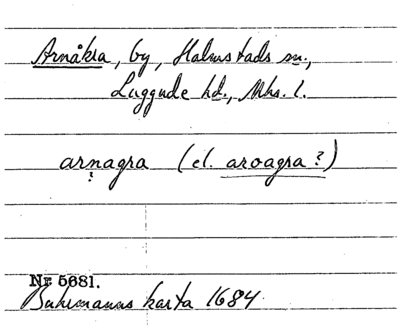 Arnåkra, by, Halmstads sn.,
Luggude hd., Mhs. l.
arnagra (el. aroagra?)
?
Nr 5681.
Buhrmanns karta 1684.